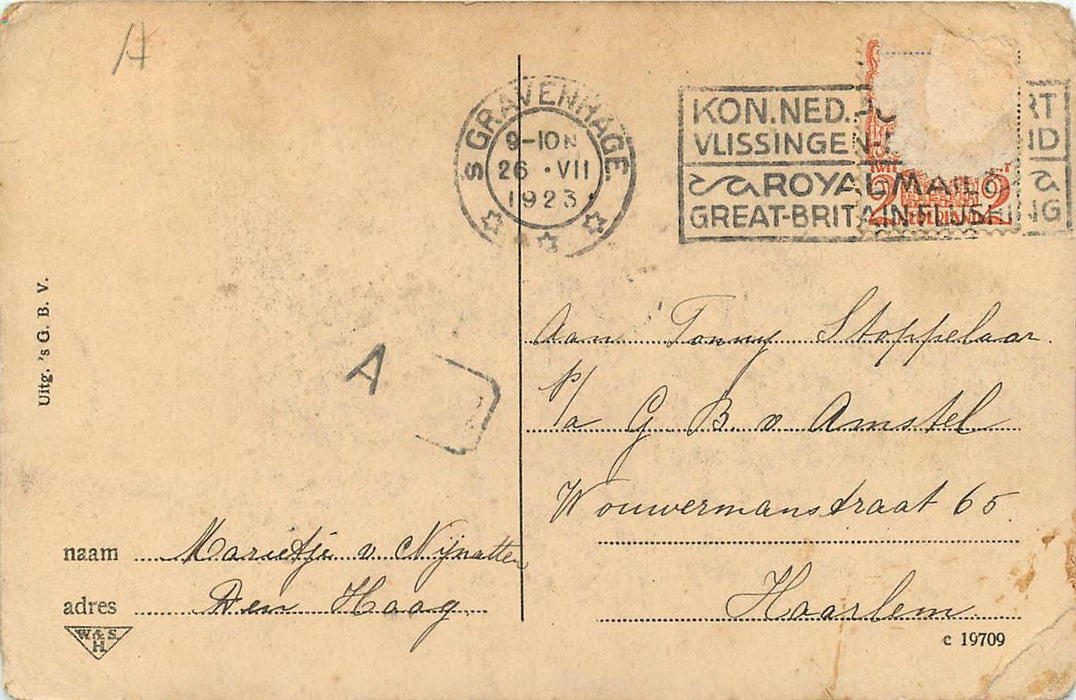 A
's GRAVENHAGE.
9-10 N
26 · VII
1923
KON. NED. RT
VLISSINGEN- ND
ROYAL MAIL
GREAT-BRITAIN FLUSHING
2 2
Uitg. 's G. B. V.
A
Aan Tonny Stoppelaar.
p/a G. B. v Amstel
Wouwermanstraat 65.
Haarlem.
naam Marietje v. Nijnatten
adres Den Haag.
W. & S.
H.
c 19709